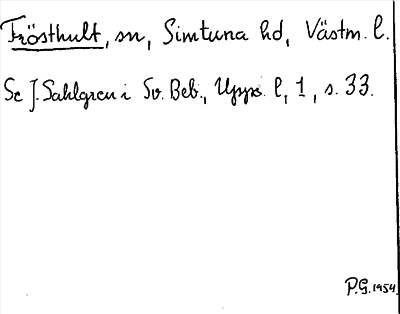 Frösthult, sn, Simtuna hd, Västm. l.
Se J. Sahlgren i Sv. Beb., Upps. l, 1, s. 33.
P.G. 1954.